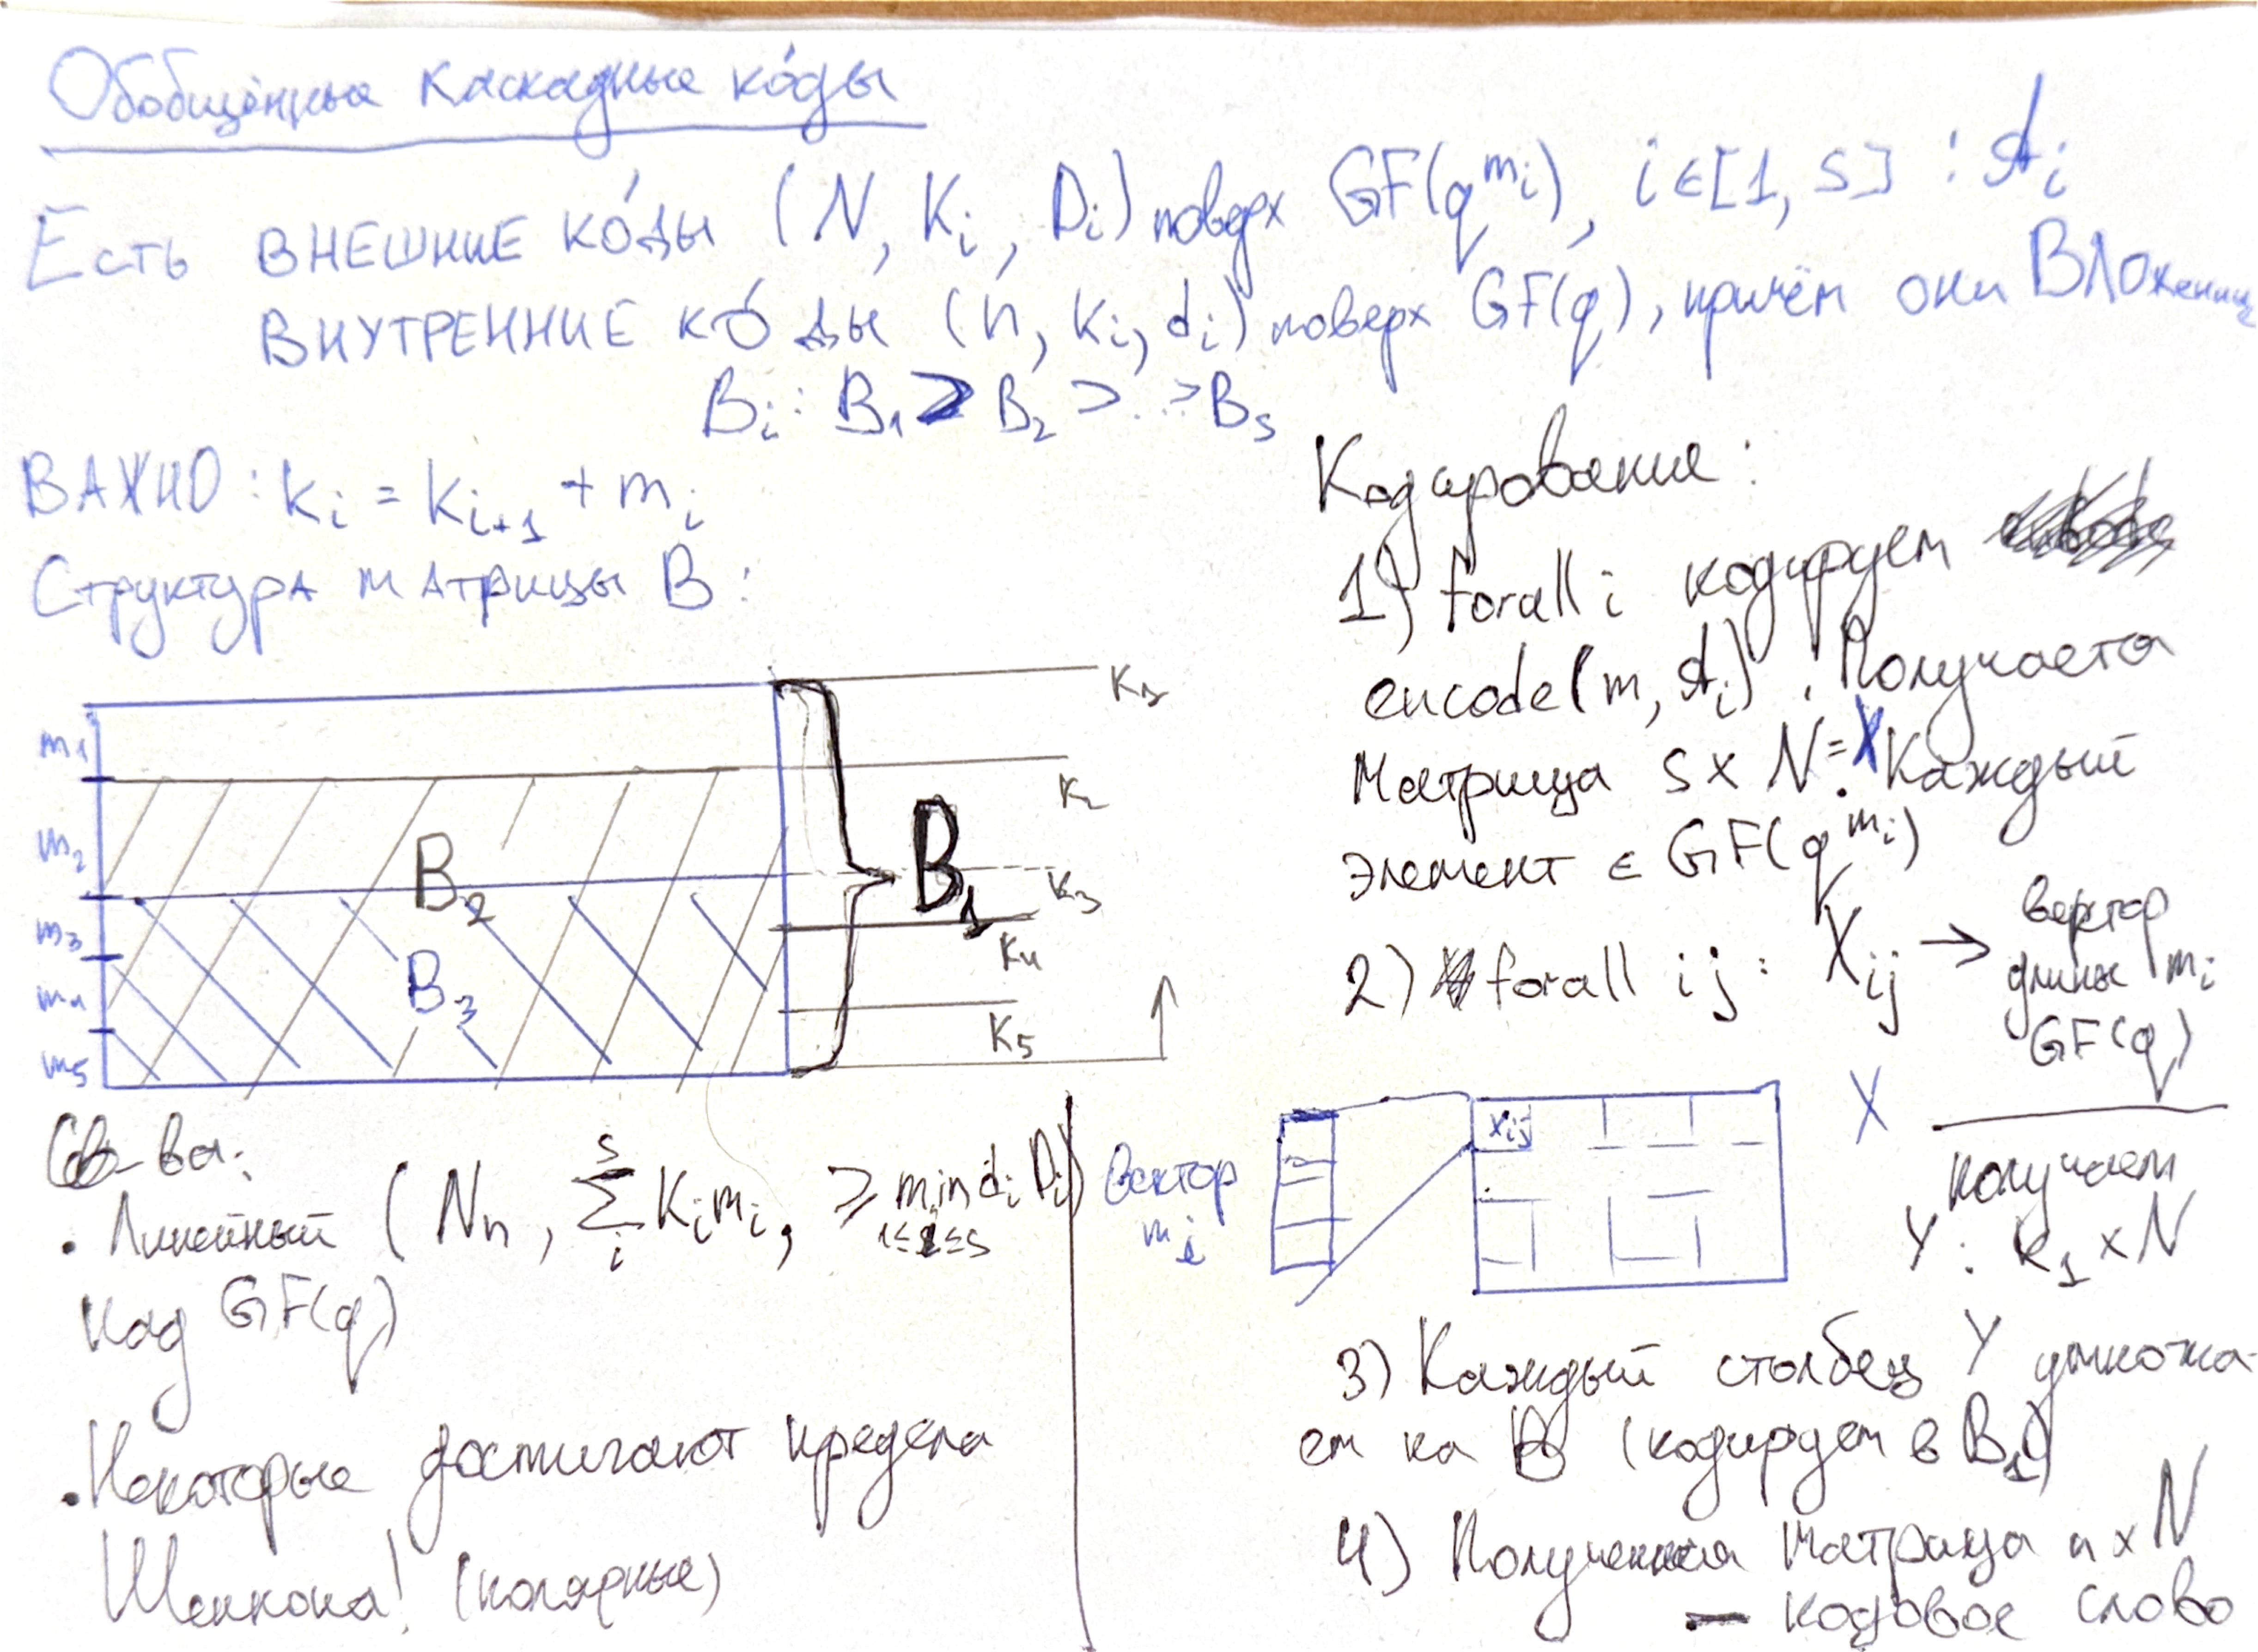 Обобщённые каскадные ко́ды
Есть ВНЕШНИЕ КО́ДЫ (N, Kᵢ, Dᵢ) поверх GF(q^mᵢ), i∈[1, S] : 𝒜ᵢ
ВНУТРЕННИЕ КО́ДЫ (n, kᵢ, dᵢ) поверх GF(q), причём они Вложенны
Bᵢ: B₁ > B₂ > .. > Bₛ
ВАЖНО: kᵢ = kᵢ₊₁ + mᵢ
Структура матрицы B:
m₁
m₂
m₃
m₄
m₅
B₂
B₃
B₁
K₁
K₂
K₃
K₄
K₅
Св-ва:
• Линейный (Nn, ∑ᵢˢ Kᵢmᵢ, ⩾ min dᵢDᵢ)
1≤i≤s
код GF(q)
• Некоторые достигают предела
Шеннона! (полярные)
Кодирование:
1) forall i кодируем
encode(m, 𝒜ᵢ). Получается
Матрица S x N = X. Каждый
элемент ∈ GF(q^mᵢ)
2) forall ij: Xᵢⱼ → вектор
длины mᵢ
GF(q)
вектор
mᵢ
xᵢⱼ
X
получаем
Y: k₁ x N
3) Каждый столбец Y умножа-
ем на B (кодируем в B₁)
4) Полученная матрица n x N
— кодовое слово